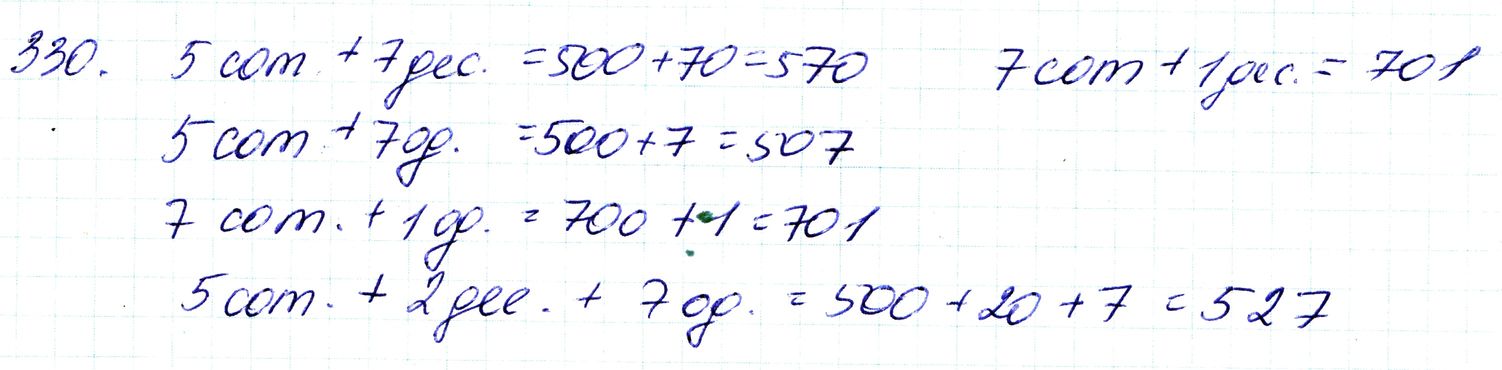 330. 5 сот. + 7 дес. = 500 + 70 = 570 7 сот + 1 дес. = 701
5 сот + 7 од. = 500 + 7 = 507
7 сот. + 1 од. = 700 + 1 = 701
5 сот. + 2 дес. + 7 од. = 500 + 20 + 7 = 527